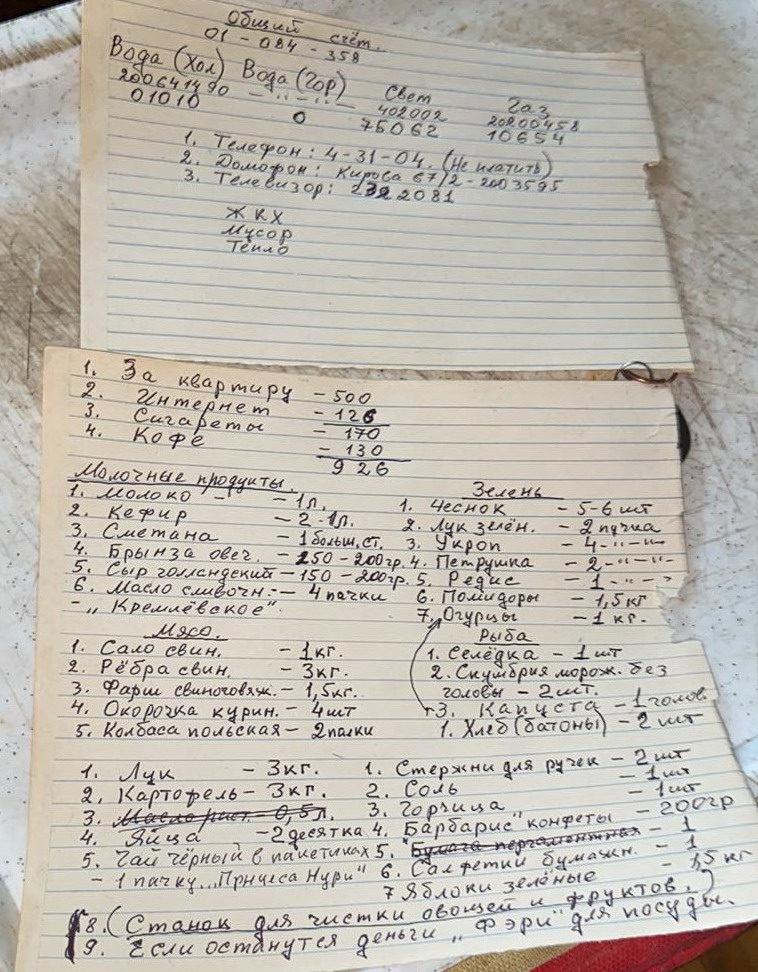 Общий счёт.
01 - 084 - 358
Вода (Хол) Вода (Гор) Свет Газ
200641490 - " - " - 402002 20200458
01010 0 75062 10654
1. Телефон: 4-31-04. (Не платить)
2. Домофон: Кирова 67/2 - 2003595
3. Телевизор: 2322081
ЖКХ
Мусор
Тепло
1. За квартиру - 500
2. Интернет - 126
3. Сигареты - 170
4. Кофе - 130
926
Молочные продукты.
1. Молоко - - 1л.
2. Кефир - 2-1л.
3. Сметана - 1 больш. ст.
4. Брынза овеч. - 250-200гр.
5. Сыр голландский - 150-200гр.
6. Масло сливочн. - 4 пачки
- „Кремлёвское".
Зелень
1. Чеснок - 5-6 шт
2. Лук зелён. - 2 пучка
3. Укроп - 4 - " - " -
4. Петрушка - 2 - " - " -
5. Редис - 1 - " - "
6. Помидоры - 1,5 кг
7. Огурцы - 1 кг.
Мясо.
1. Сало свин. - 1кг.
2. Рёбра свин. - 3кг.
3. Фарш свиноговяж. - 1,5кг.
4. Окорочка курин. - 4шт
5. Колбаса польская - 2палки
Рыба
1. Селёдка - 1 шт
2. Скумбрия морож. без
головы - 2шт.
3. Капуста - 1 голов.
1. Хлеб (батоны) - 2 шт
1. Лук - 3кг.
2. Картофель - 3кг.
3. Масло раст. - 0,5л.
4. Яйца - 2десятка
5. Чай чёрный в пакетиках
- 1 пачку „Принцеса Нури"
1. Стержни для ручек - 2 шт
2. Соль - 1шт
3. Горчица - 1шт
4. Барбарис" конфеты - 200гр
5. "Бумага пергаментная - 1
6. Салфетки бумажн. - 1
7 Яблоки зелёные - 1,5 кг
8. (Станок для чистки овощей и фруктов.)
9. Если останутся деньги „Фэри" для посуды.